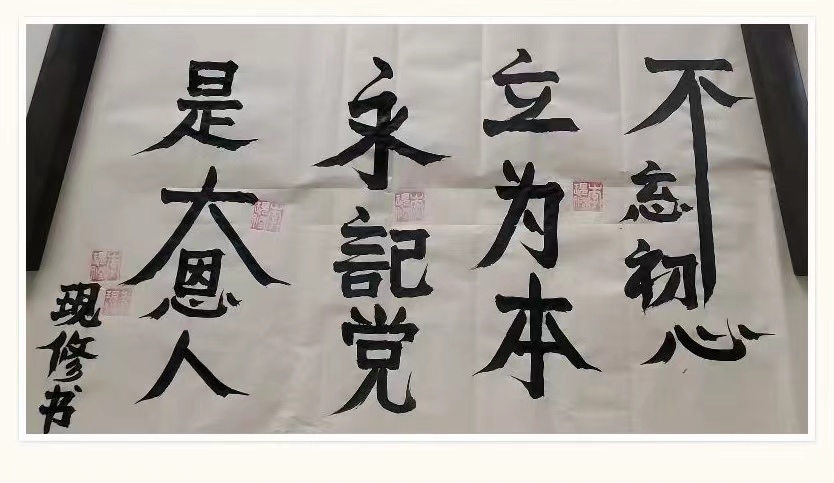 不忘初心
立为本
永記党
是大恩人
现修书